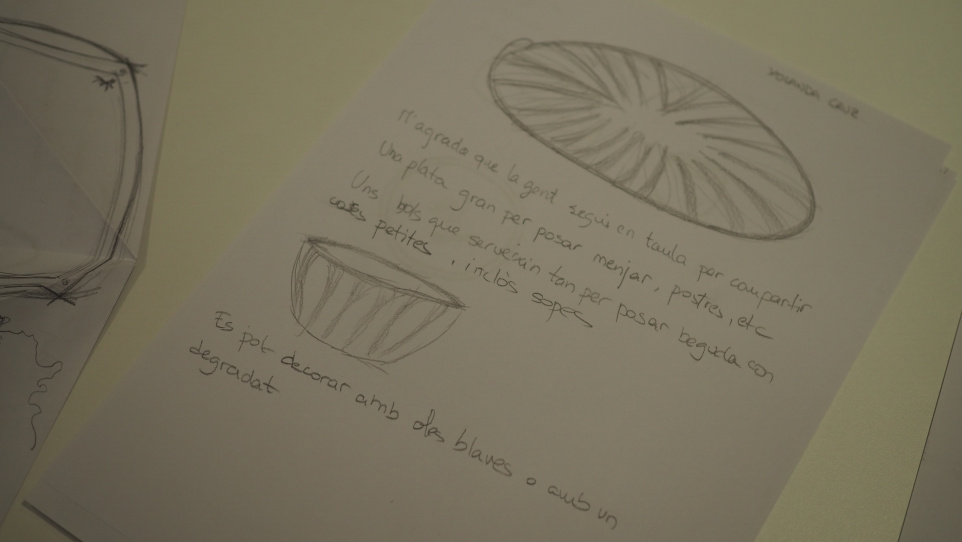 YOLANDA CRUZ
M'agrada que la gent segui en taula per compartir
Una plata gran per posar menjar, postres, etc
Uns bols que serveixin tan per posar beguda con
coses petites, inclòs sopes
Es pot decorar amb oles blaves o amb un
degradat